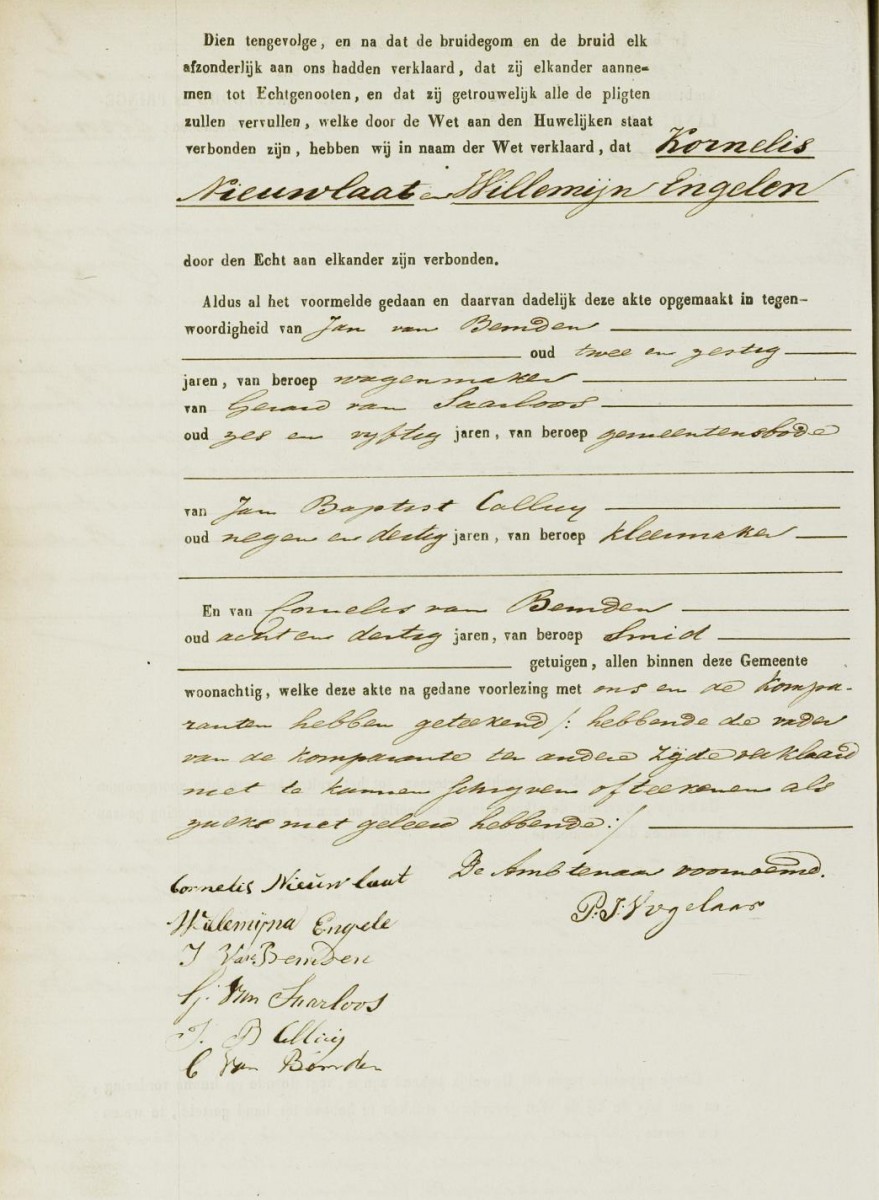 Dien tengevolge, en na dat de bruidegom en de bruid elk
afzonderlijk aan ons hadden verklaard, dat zij elkander aanne-
men tot Echtgenooten, en dat zij getrouwelijk alle de pligten
zullen vervullen, welke door de Wet aan den Huwelijken staat
verbonden zijn, hebben wij in naam der Wet verklaard, dat Kornelis
Nieuwlaat en Willemijn Engelen
door den Echt aan elkander zijn verbonden.
Aldus al het voormelde gedaan en daarvan dadelijk deze akte opgemaakt in tegen-
woordigheid van Jan van Bemden
oud twee en zestig
jaren, van beroep wagenmaker
van Gerard van Saarloos
oud zes en vyftig jaren, van beroep gemeentensbode
van Jan Baptist Colluy
oud negen en dertig jaren, van beroep kleermaker
En van Cornelis van Bemden
oud acht en dertig jaren, van beroep Smid
getuigen, allen binnen deze Gemeente
woonachtig, welke deze akte na gedane voorlezing met ons en de kompa-
ranten hebben geteekend /: hebbende de vader
van de komparante ter andere zijde verklaard
niet te kunnen schryven of teekenen als
zulks niet geleerd hebbende :/
Cornelis Nieuwlaat De Ambtenaar voornoemd.
Willemijna Engele P. J. Vogelaar
J Van Bemden
G. Van Saarloos
J. B Colluy
C Van Bemden